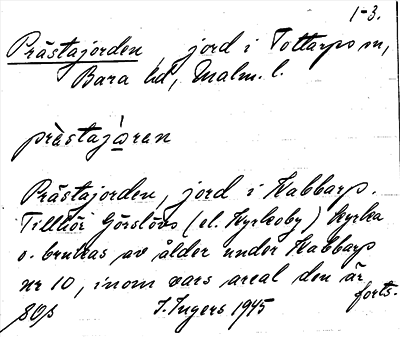 1-3.
Prästajorden, jord i Tottarps sn,
Bara hd, Malm. l.
prèstajòren
Prästajorden, jord i Habbarp.
Tillhör Görslövs (el. Kyrkoby) kyrka
o. brukas av ålder under Habbarp
nr 10, inom vars areal den är
forts.
I. Ingers 1945